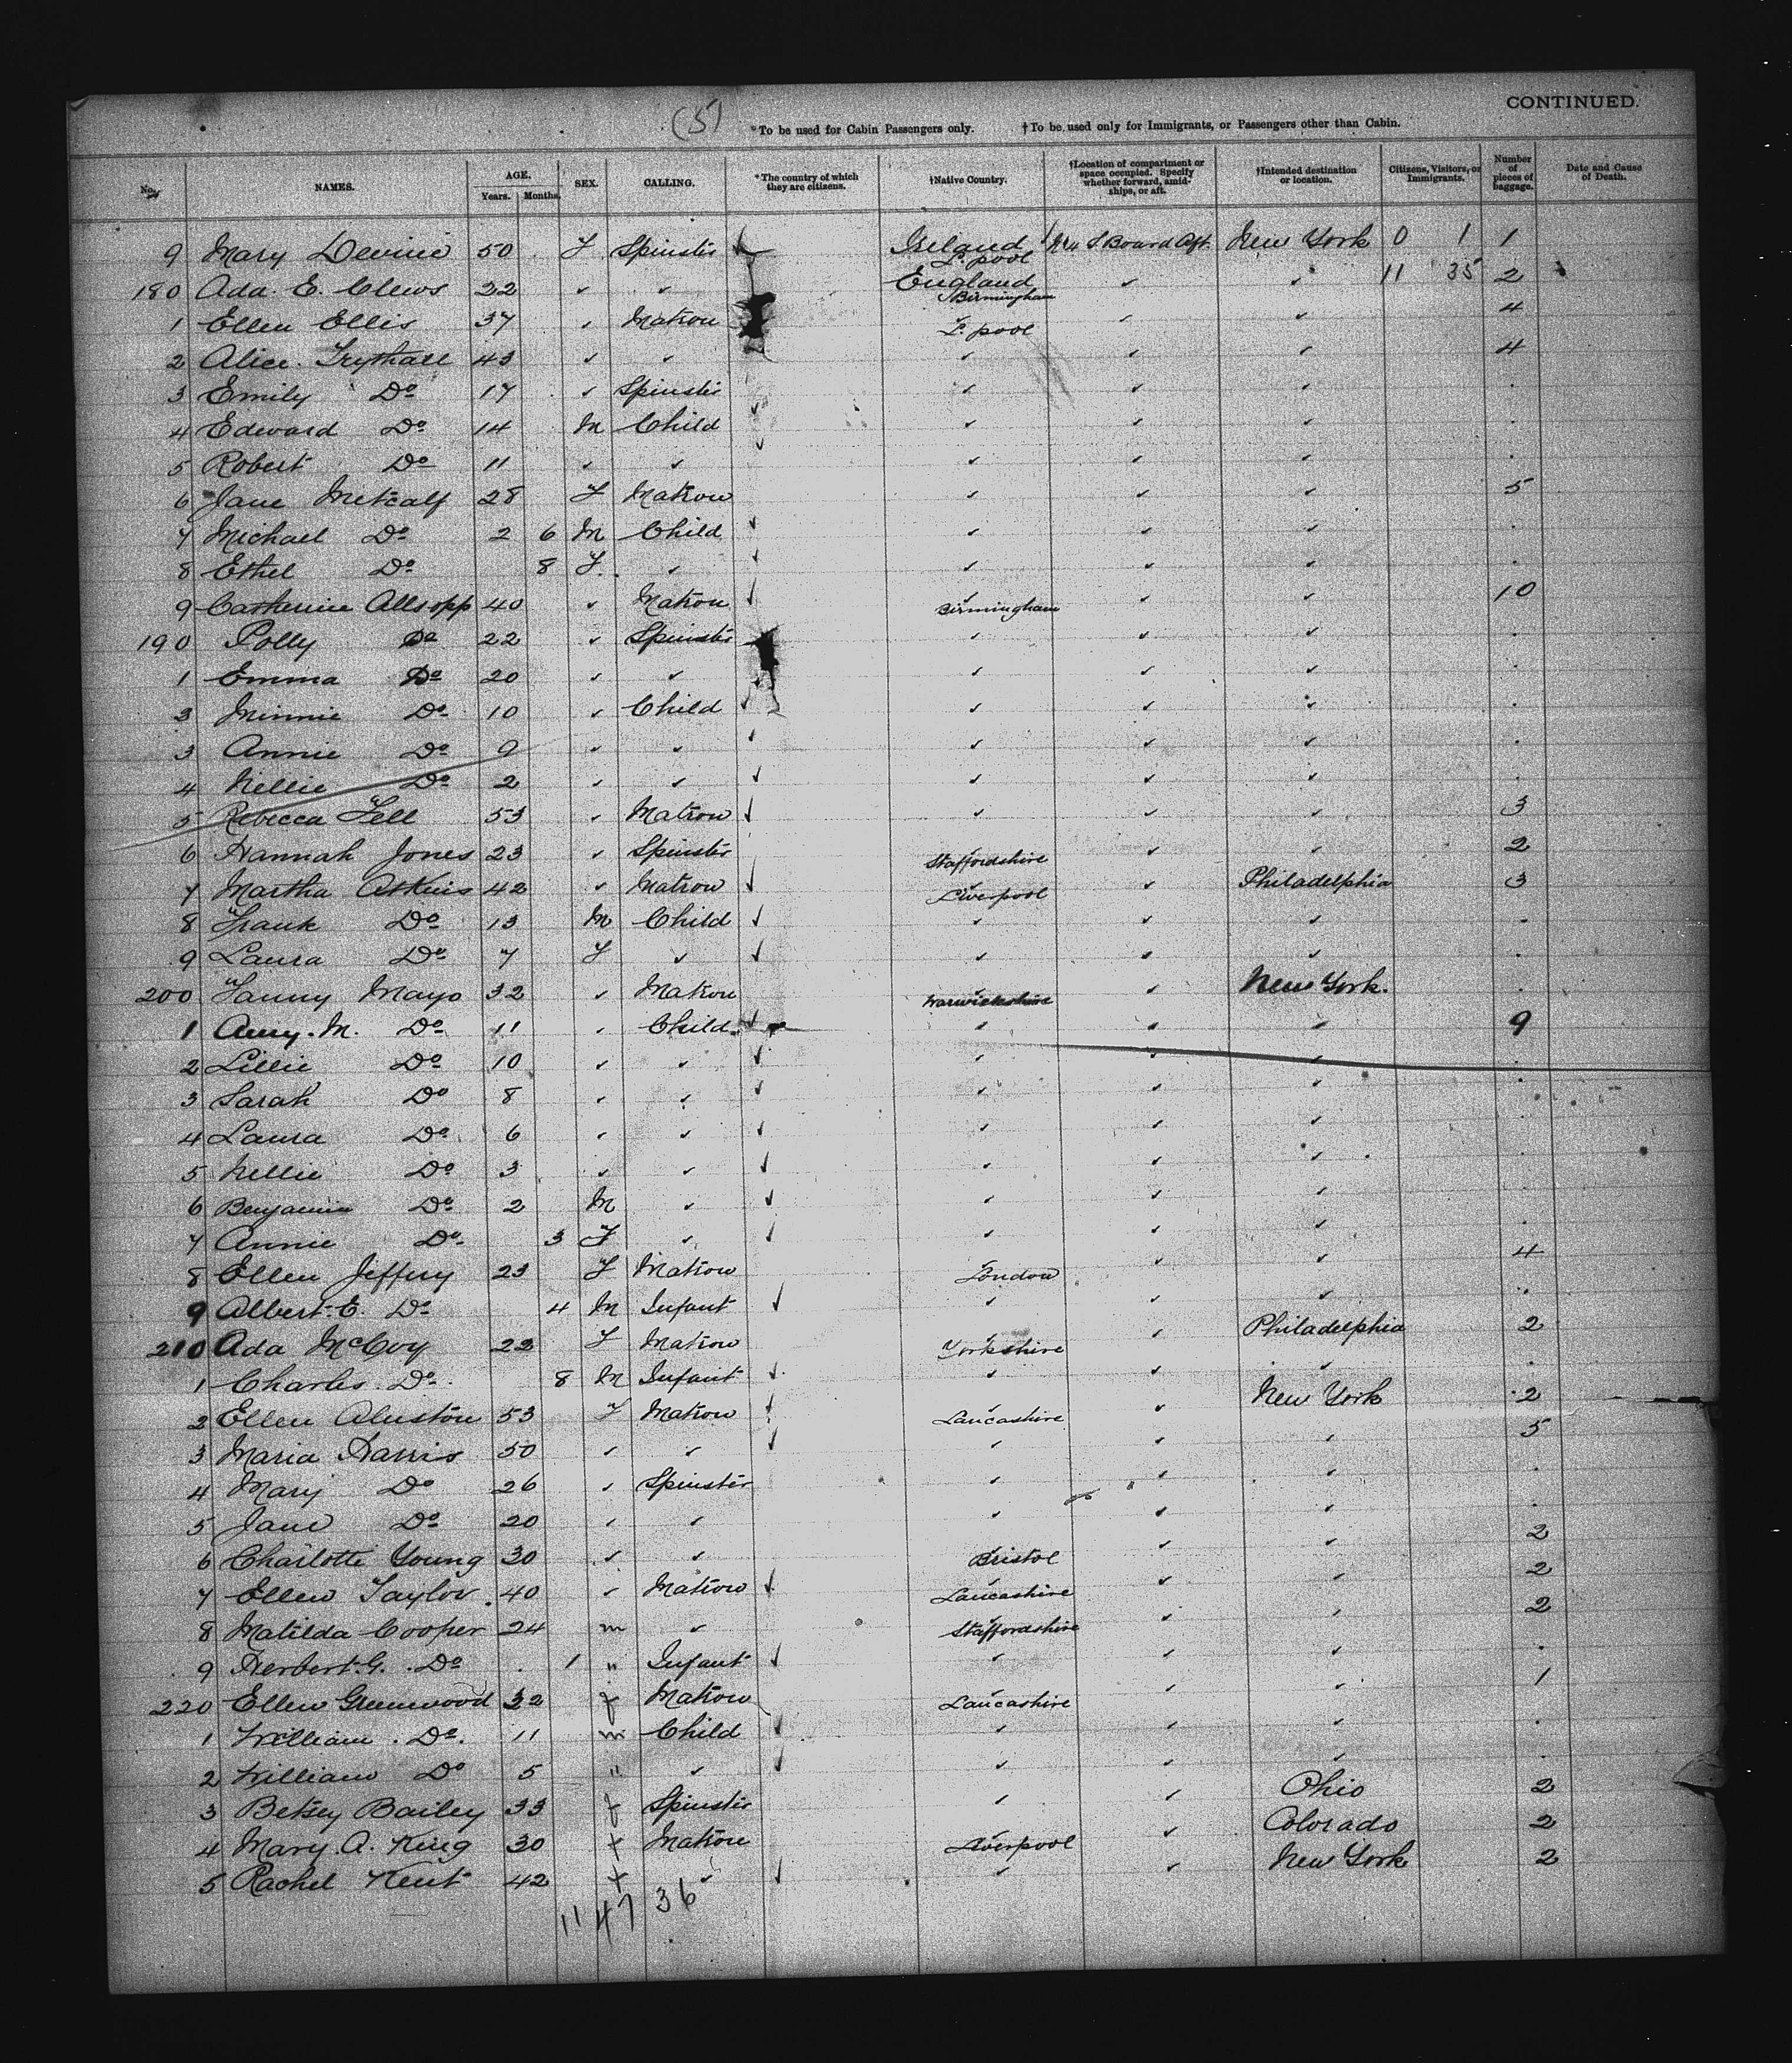 CONTINUED.
(5)
*To be used for Cabin Passengers only. †To be used only for Immigrants, or Passengers other than Cabin.
No. NAMES. AGE. Years. Months. SEX. CALLING. *The country of which they are citizens. †Native Country. †Location of compartment or space occupied. Specify whether forward, amidships, or aft. †Intended destination or location. Citizens, Visitors, or Immigrants. Number of pieces of baggage. Date and Cause of Death.
9 Mary Devine 50 F Spinster Ireland Board Aft. New York 0 1 1
180 Ada. E. Clews 22 ✓ ✓ L. pool England ✓ ✓ 11 35 2
1 Ellen Ellis 37 ✓ Matron Birmingham ✓ ✓ 4
2 Alice. Trythall 43 ✓ ✓ L. pool ✓ ✓ ✓ 4
3 Emily Do 17 ✓ Spinster ✓ ✓ ✓
4 Edward Do 14 M Child ✓ ✓ ✓
5 Robert Do 11 ✓ ✓ ✓ ✓ ✓
6 Jane Metcalf 28 F Matron ✓ ✓ ✓ 5
7 Michael Do 2 6 M Child ✓ ✓ ✓
8 Ethel Do 8 F. ✓ ✓ ✓ ✓
9 Catherine Allsopp 40 ✓ Matron Birmingham ✓ ✓ 10
190 Polly Do 22 ✓ Spinster ✓ ✓ ✓
1 Emma Do 20 ✓ ✓ ✓ ✓ ✓
3 Minnie Do 10 ✓ Child ✓ ✓ ✓
3 Annie Do 9 ✓ ✓ ✓ ✓ ✓
4 Nellie Do 2 ✓ ✓ ✓ ✓ ✓
5 Rebecca Fell 53 ✓ Matron ✓ ✓ ✓ 3
6 Hannah Jones 23 ✓ Spinster Staffordshire ✓ ✓ 2
7 Martha Atkins 42 ✓ Matron Liverpool ✓ Philadelphia 3
8 Frank Do 13 M Child ✓ ✓ ✓
9 Laura Do 7 F ✓ ✓ ✓ ✓
200 Fanny Mayo 32 ✓ Matron Warwickshire ✓ New York.
1 Amy. M. Do 11 ✓ Child ✓ ✓ ✓ 9
2 Lillie Do 10 ✓ ✓ ✓ ✓ ✓
3 Sarah Do 8 ✓ ✓ ✓ ✓ ✓
4 Laura Do 6 ✓ ✓ ✓ ✓ ✓
5 Nellie Do 3 ✓ ✓ ✓ ✓ ✓
6 Benjamin Do 2 M ✓ ✓ ✓ ✓
7 Annie Do 3 F ✓ ✓ ✓ ✓
8 Ellen Jeffery 23 F Matron London ✓ ✓ 4
9 Albert. E. Do 4 M Infant ✓ ✓ ✓
210 Ada McCoy 23 F Matron Yorkshire ✓ Philadelphia 2
1 Charles. Do 8 M Infant ✓ ✓ ✓
2 Ellen 53 F Matron Lancashire ✓ New York 2
3 Maria Harris 50 ✓ ✓ ✓ ✓ ✓ 5
4 Mary Do 26 ✓ Spinster ✓ ✓ ✓
5 Jane Do 20 ✓ ✓ ✓ ✓ ✓
6 Charlotte Young 30 ✓ ✓ Bristol ✓ ✓ 2
7 Ellen Taylor. 40 ✓ Matron Lancashire ✓ ✓ 2
8 Matilda Cooper 24 m ✓ Staffordshire ✓ ✓ 2
9 Herbert. G. Do 1 " Infant ✓ ✓ ✓
220 Ellen Greenwood 32 f Matron Lancashire ✓ ✓ 1
1 William. Do. 11 m Child ✓ ✓ ✓
2 William Do 5 " ✓ ✓ ✓ ✓
3 Betsey Bailey 33 f Spinster ✓ ✓ Ohio 2
4 Mary. A. King 30 f Matron Liverpool ✓ Colorado 2
5 Rachel Kent 42 f ✓ ✓ ✓ New York 2
11 47 36